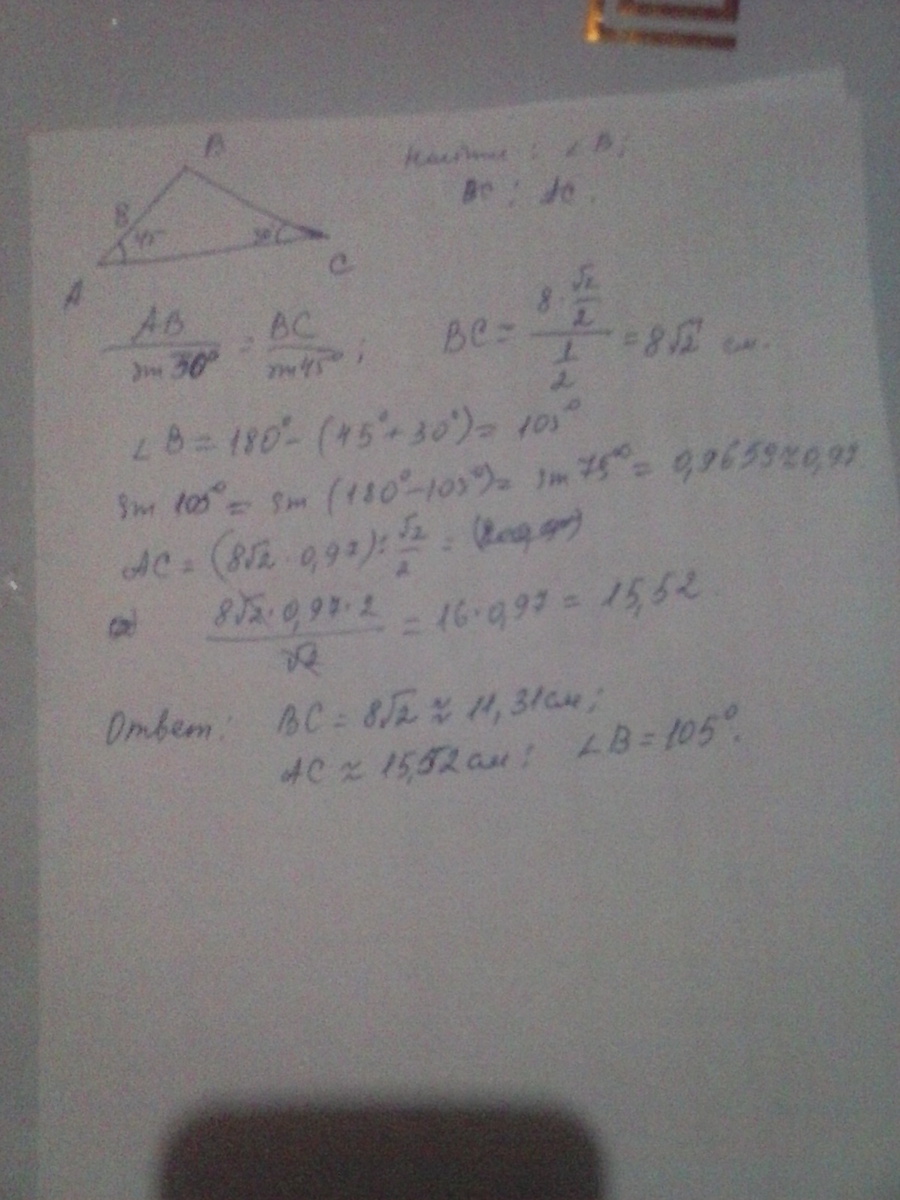 B
Найти: ∠B;
BC; AC.
8
45
30
A
C
AB/sin30° = BC/sin45°; BC = (8·√2/2)/(1/2) = 8√2 см.
∠B = 180° - (45° + 30°) = 105°
sin 105° = sin (180° - 105°) = sin 75° = 0,9659 ≈ 0,97
AC = (8√2 · 0,97) : √2/2 =
(8√2 · 0,97 · 2)/√2 = 16 · 0,97 = 15,52
Ответ: BC = 8√2 ≈ 11,31 см;
AC ≈ 15,52 см; ∠B = 105°.